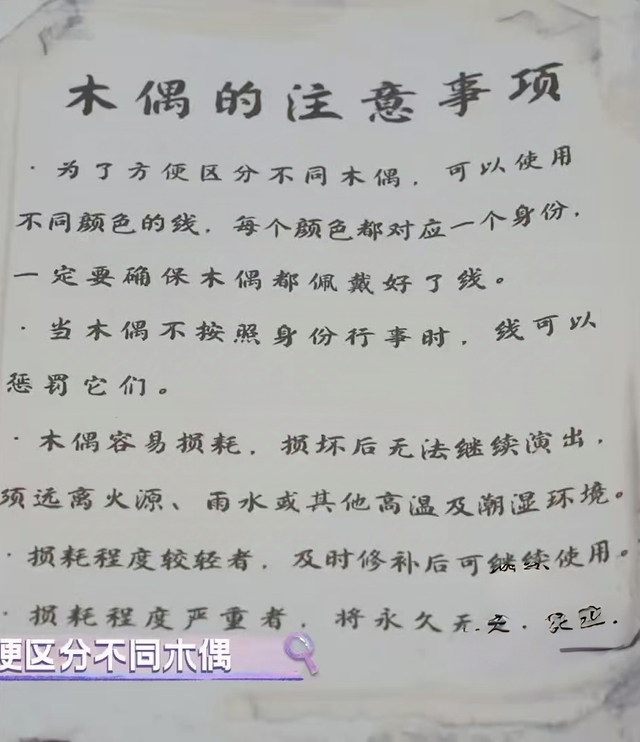 木偶的注意事项
· 为了方便区分不同木偶，可以使用
不同颜色的线，每个颜色都对应一个身份，
一定要确保木偶都佩戴好了线。
· 当木偶不按照身份行事时，线可以
惩罚它们。
· 木偶容易损耗，损坏后无法继续演出，
须远离火源、雨水或其他高温及潮湿环境。
· 损耗程度较轻者，及时修补后可继续使用。
· 损耗程度严重者，将永久无
便区分不同木偶